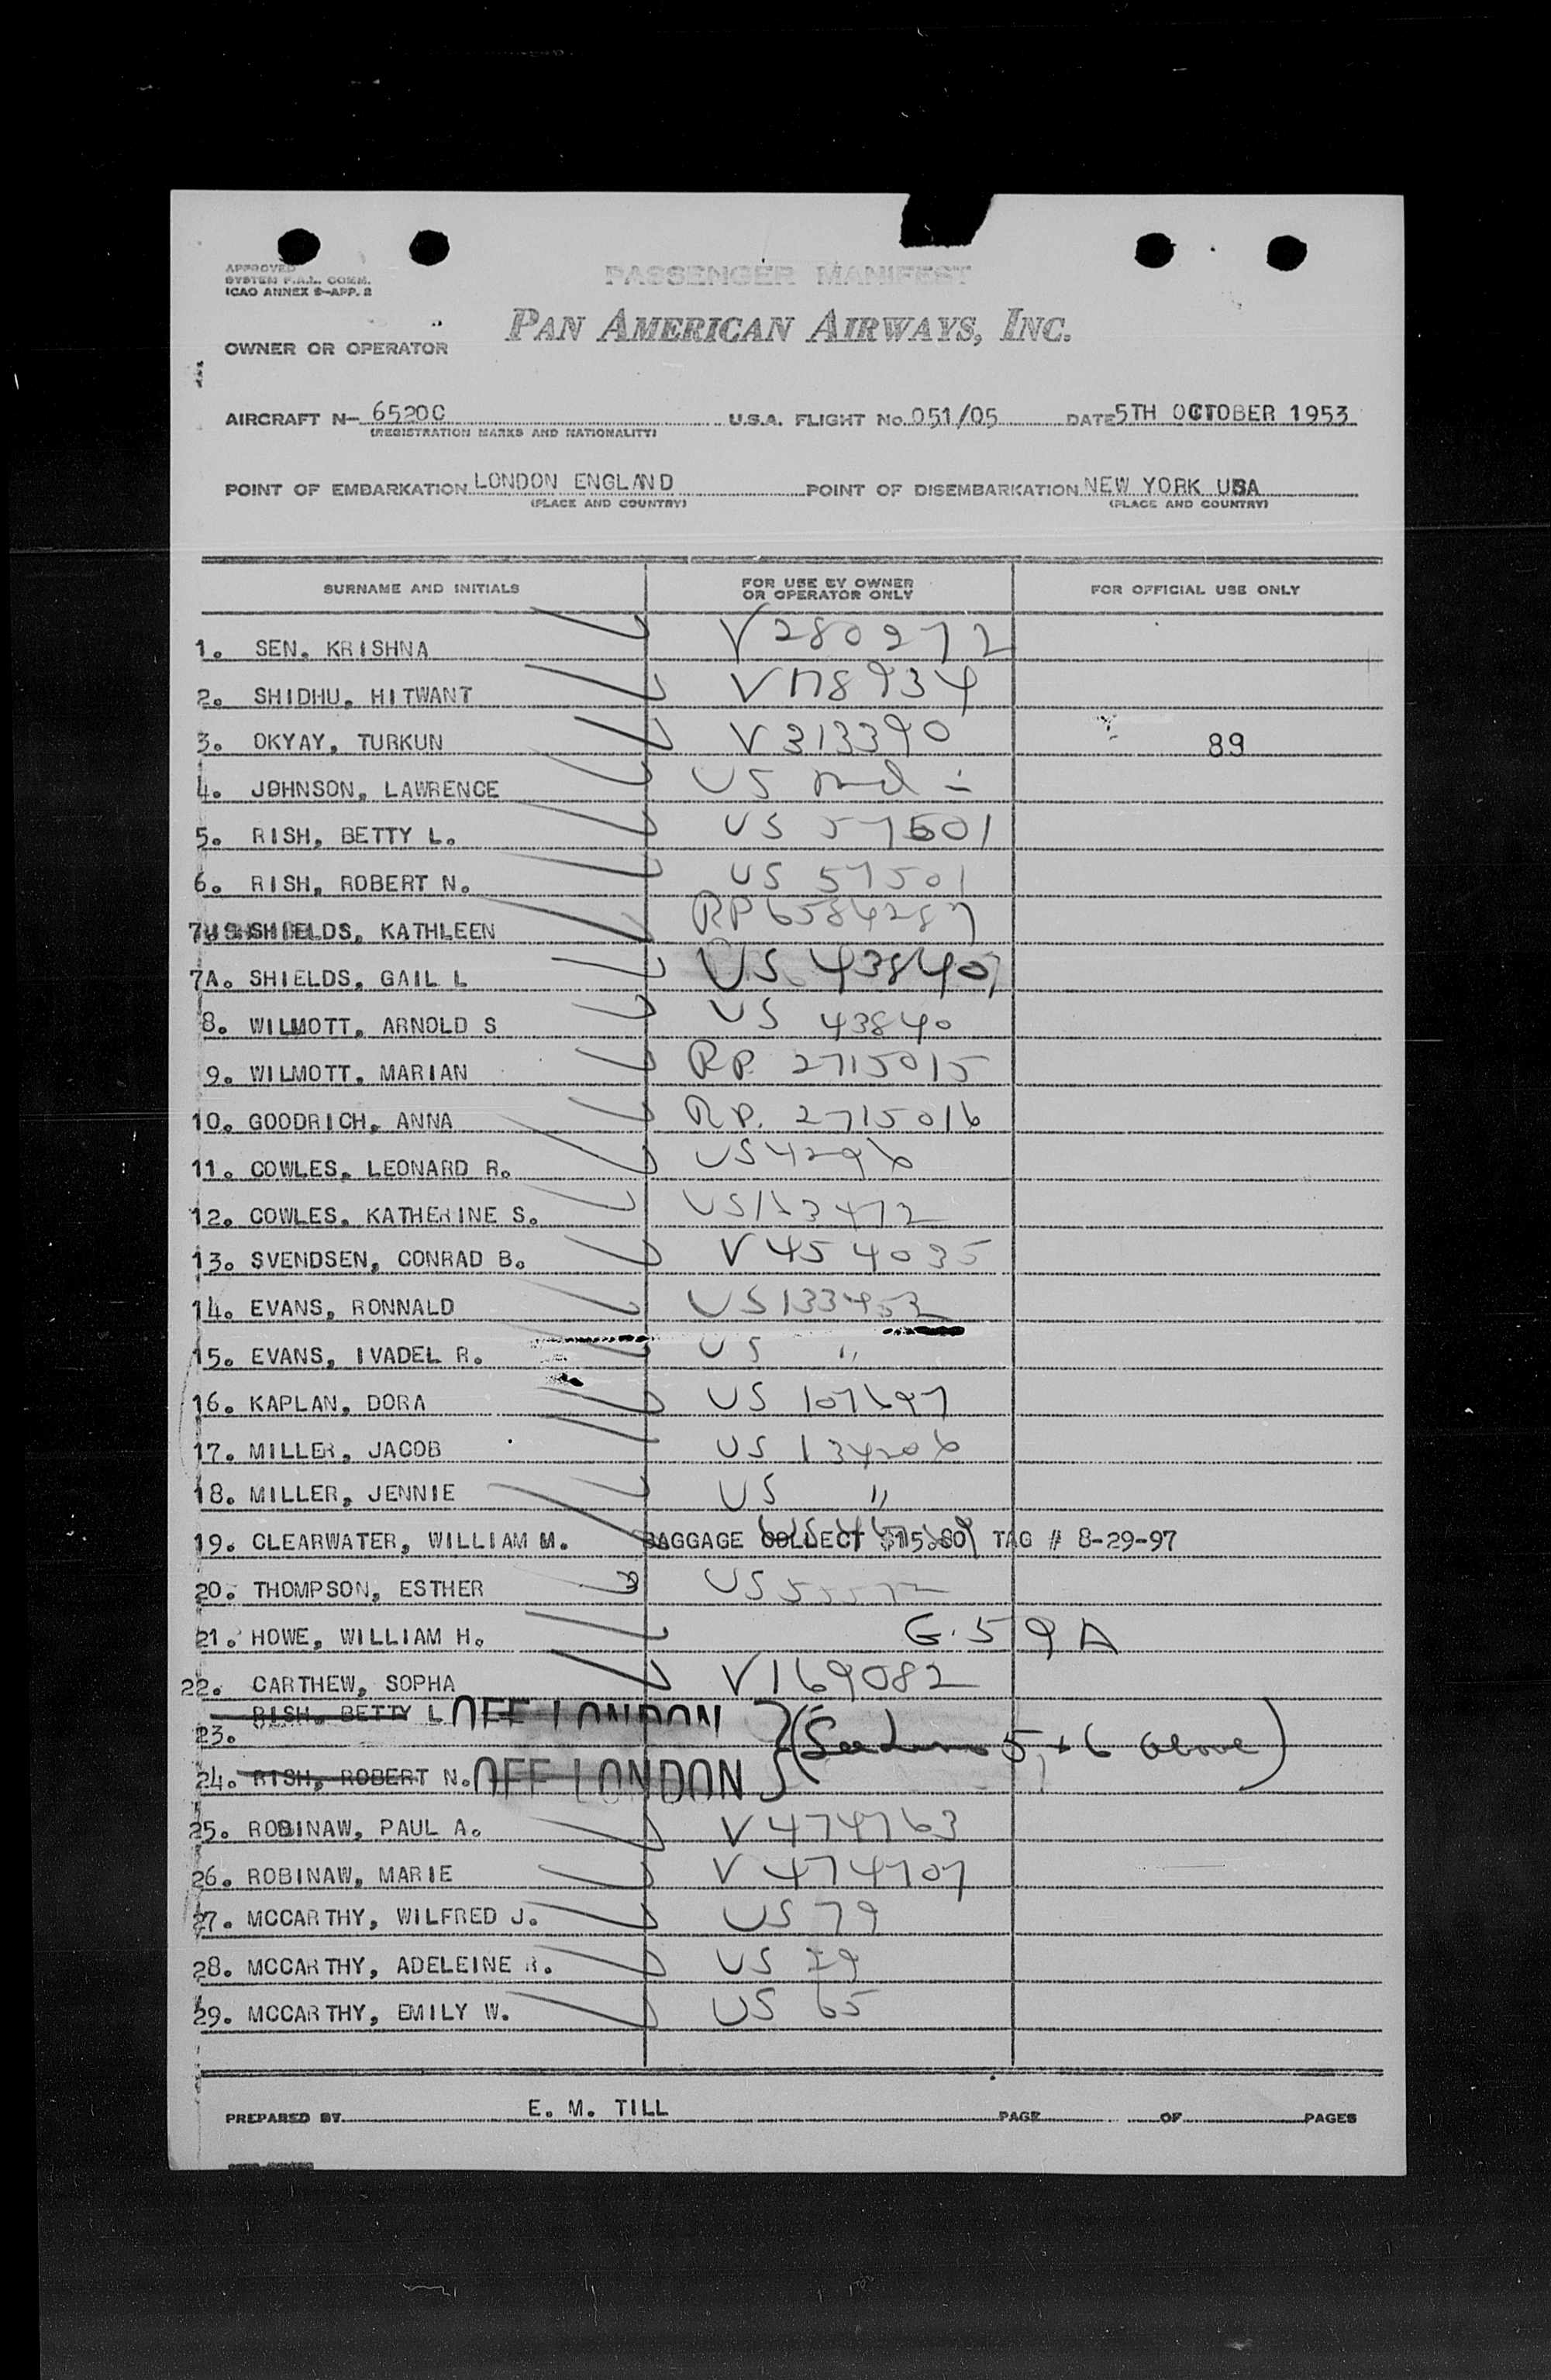 APPROVED
SYSTEM F.A.L. COMM.
ICAO ANNEX 9-APP. 2
PASSENGER MANIFEST
PAN AMERICAN AIRWAYS, INC.
OWNER OR OPERATOR
AIRCRAFT N- 6520C U.S.A. FLIGHT NO. 051/05 DATE 5TH OCTOBER 1953
(REGISTRATION MARKS AND NATIONALITY)
POINT OF EMBARKATION LONDON ENGLAND POINT OF DISEMBARKATION NEW YORK USA
(PLACE AND COUNTRY) (PLACE AND COUNTRY)
SURNAME AND INITIALS FOR USE BY OWNER OR OPERATOR ONLY FOR OFFICIAL USE ONLY
1. SEN, KRISHNA V280272
2. SHIDHU, HITWANT V178934
3. OKYAY, TURKUN V313390 89
4. JOHNSON, LAWRENCE US
5. RISH, BETTY L. US 57501
6. RISH, ROBERT N. US 57501
7. SHIELDS, KATHLEEN RP6584287
7A. SHIELDS, GAIL L US 43840
8. WILMOTT, ARNOLD S US 43840
9. WILMOTT, MARIAN RP. 2715015
10. GOODRICH, ANNA RP. 2715016
11. COWLES, LEONARD R. US4296
12. COWLES, KATHERINE S. US163472
13. SVENDSEN, CONRAD B. V454035
14. EVANS, RONNALD US133453
15. EVANS, IVADEL R. US "
16. KAPLAN, DORA US 107697
17. MILLER, JACOB US 134206
18. MILLER, JENNIE US "
19. CLEARWATER, WILLIAM M. BAGGAGE COLLECT TAG # 8-29-97
20. THOMPSON, ESTHER US
21. HOWE, WILLIAM H. G.59A
22. CARTHEW, SOPHA V169082
23. RISH, BETTY L OFF LONDON
(See Lines 5 + 6 above)
24. RISH, ROBERT N. OFF LONDON
25. ROBINAW, PAUL A. V474763
26. ROBINAW, MARIE V474707
27. MCCARTHY, WILFRED J. US 79
28. MCCARTHY, ADELEINE R. US 79
29. MCCARTHY, EMILY W. US 65
PREPARED BY E. M. TILL PAGE OF PAGES